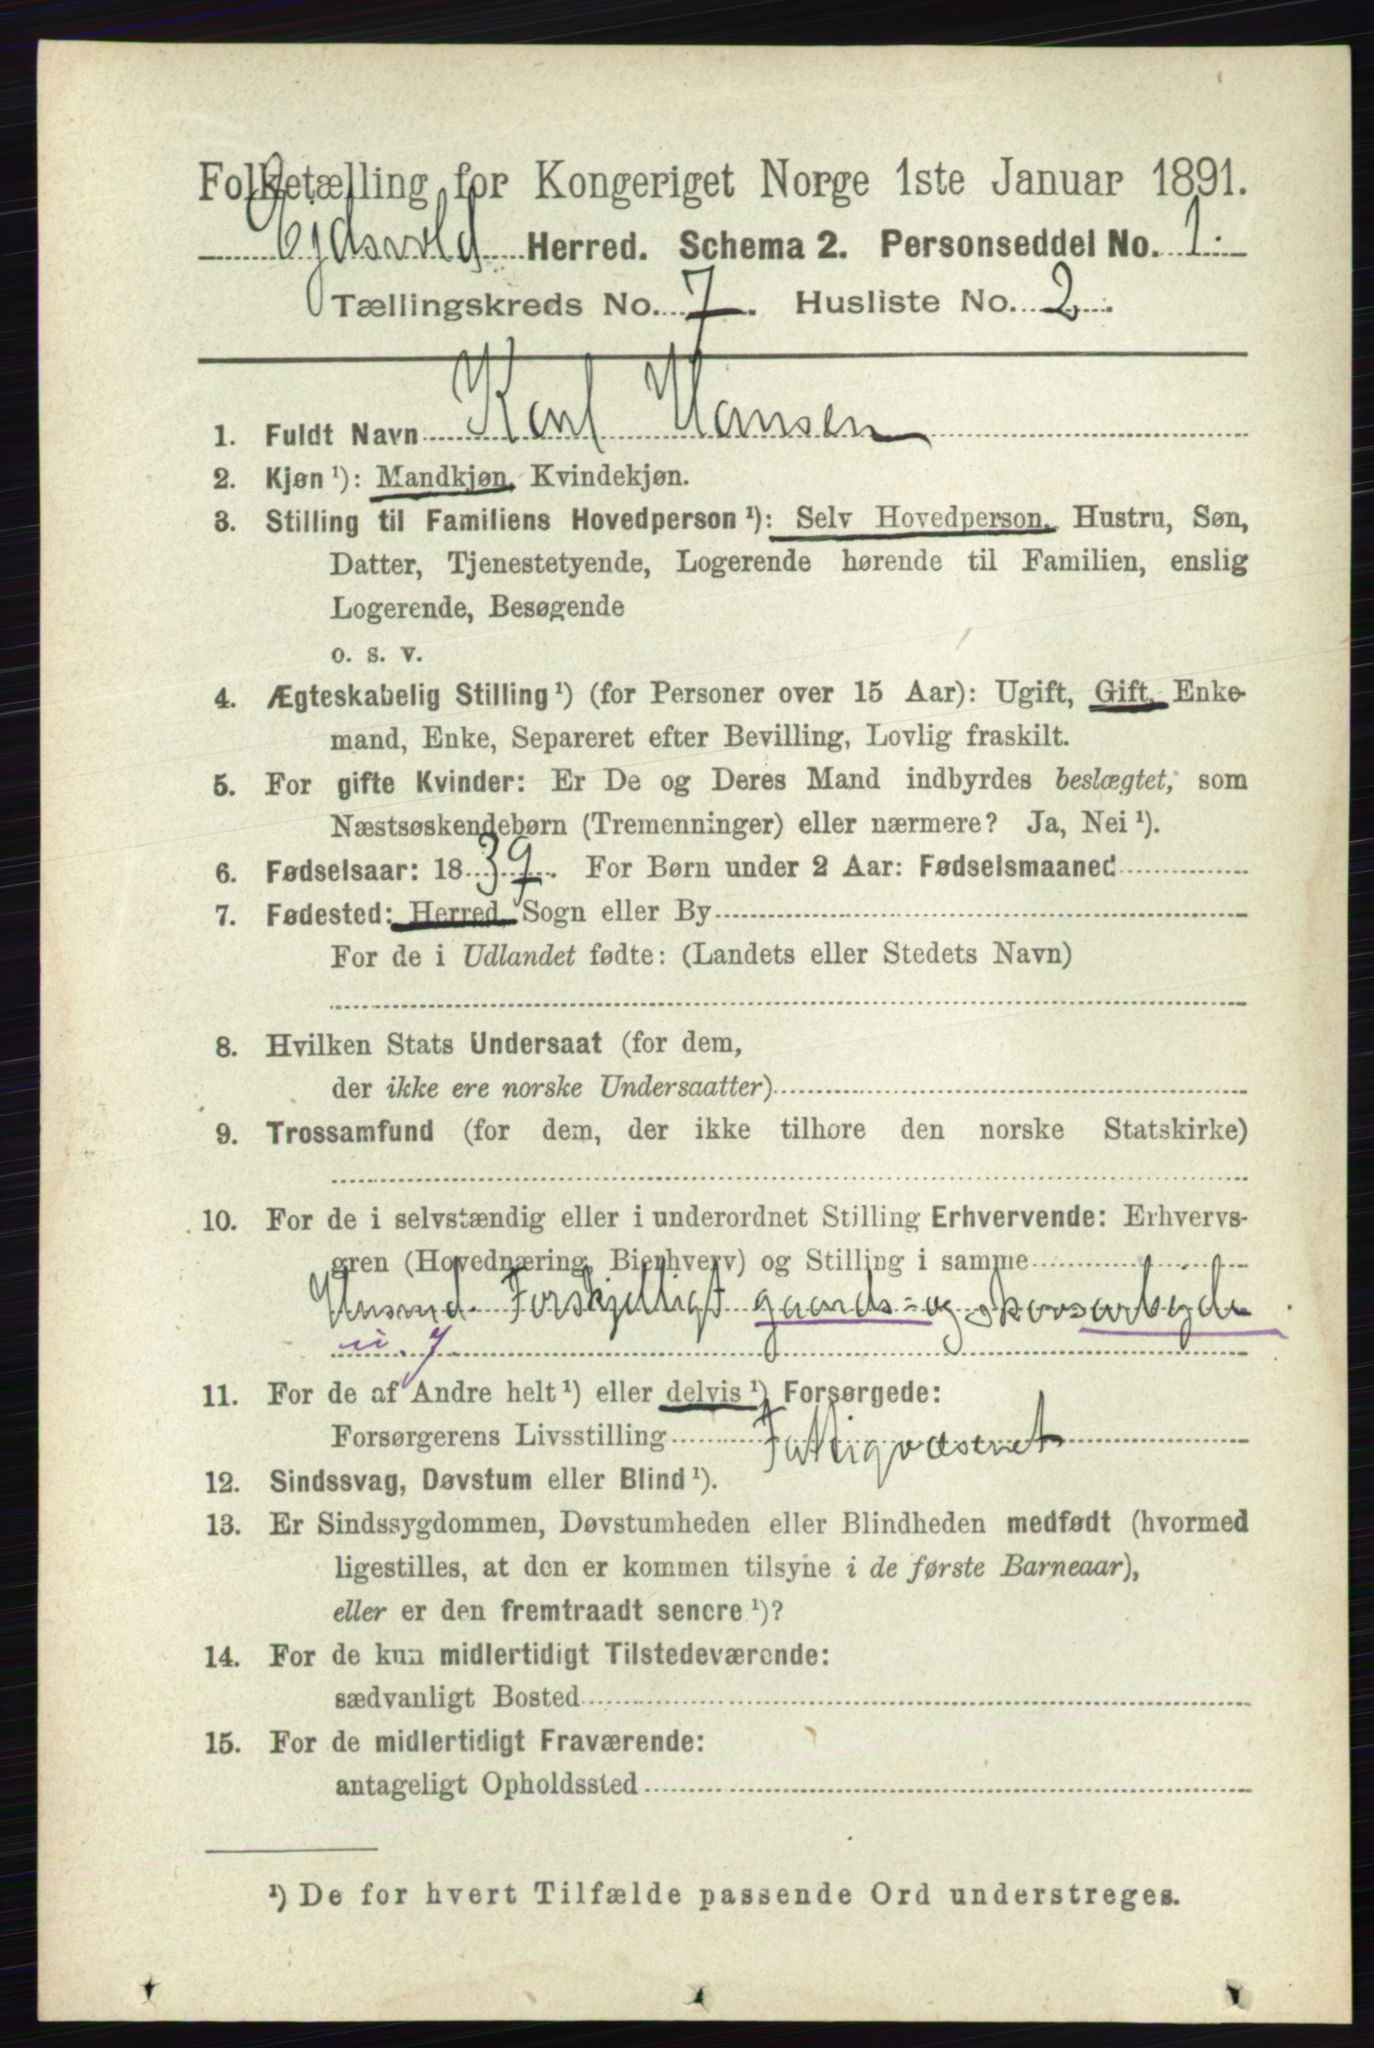 Folketælling for Kongeriget Norge 1ste Januar 1891.
Ejdsvold Herred. Schema 2. Personseddel No. 1.
Tællingskreds No. 7. Husliste No. 2.
1. Fuldt Navn Karl Hansen
2. Kjøn ¹): Mandkjøn, Kvindekjøn.
3. Stilling til Familiens Hovedperson ¹): Selv Hovedperson, Hustru, Søn,
Datter, Tjenestetyende, Logerende hørende til Familien, enslig
Logerende, Besøgende
o. s. v.
4. Ægteskabelig Stilling ¹) (for Personer over 15 Aar): Ugift, Gift, Enke-
mand, Enke, Separeret efter Bevilling, Lovlig fraskilt.
5. For gifte Kvinder: Er De og Deres Mand indbyrdes beslægtet, som
Næstsøskendebørn (Tremenninger) eller nærmere? Ja, Nei ¹).
6. Fødselsaar: 1839. For Børn under 2 Aar: Fødselsmaaned
7. Fødested: Herred, Sogn eller By
For de i Udlandet fødte: (Landets eller Stedets Navn)
8. Hvilken Stats Undersaat (for dem,
der ikke ere norske Undersaatter)
9. Trossamfund (for dem, der ikke tilhøre den norske Statskirke)
10. For de i selvstændig eller i underordnet Stilling Erhvervende: Erhvervs-
gren (Hovednæring, Bierhverv) og Stilling i samme
Husmd. Forskjelligt gaards- og skovsarbejde
11. For de af Andre helt ¹) eller delvis ¹) Forsørgede:
Forsørgerens Livsstilling Fattigvæsenet
12. Sindssvag, Døvstum eller Blind ¹).
13. Er Sindssygdommen, Døvstumheden eller Blindheden medfødt (hvormed
ligestilles, at den er kommen tilsyne i de første Barneaar),
eller er den fremtraadt senere ¹)?
14. For de kun midlertidigt Tilstedeværende:
sædvanligt Bosted
15. For de midlertidigt Fraværende:
antageligt Opholdssted
¹) De for hvert Tilfælde passende Ord understreges.